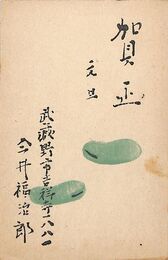 賀正
元旦
武蔵野市吉祥寺一八八一
今井福治郎